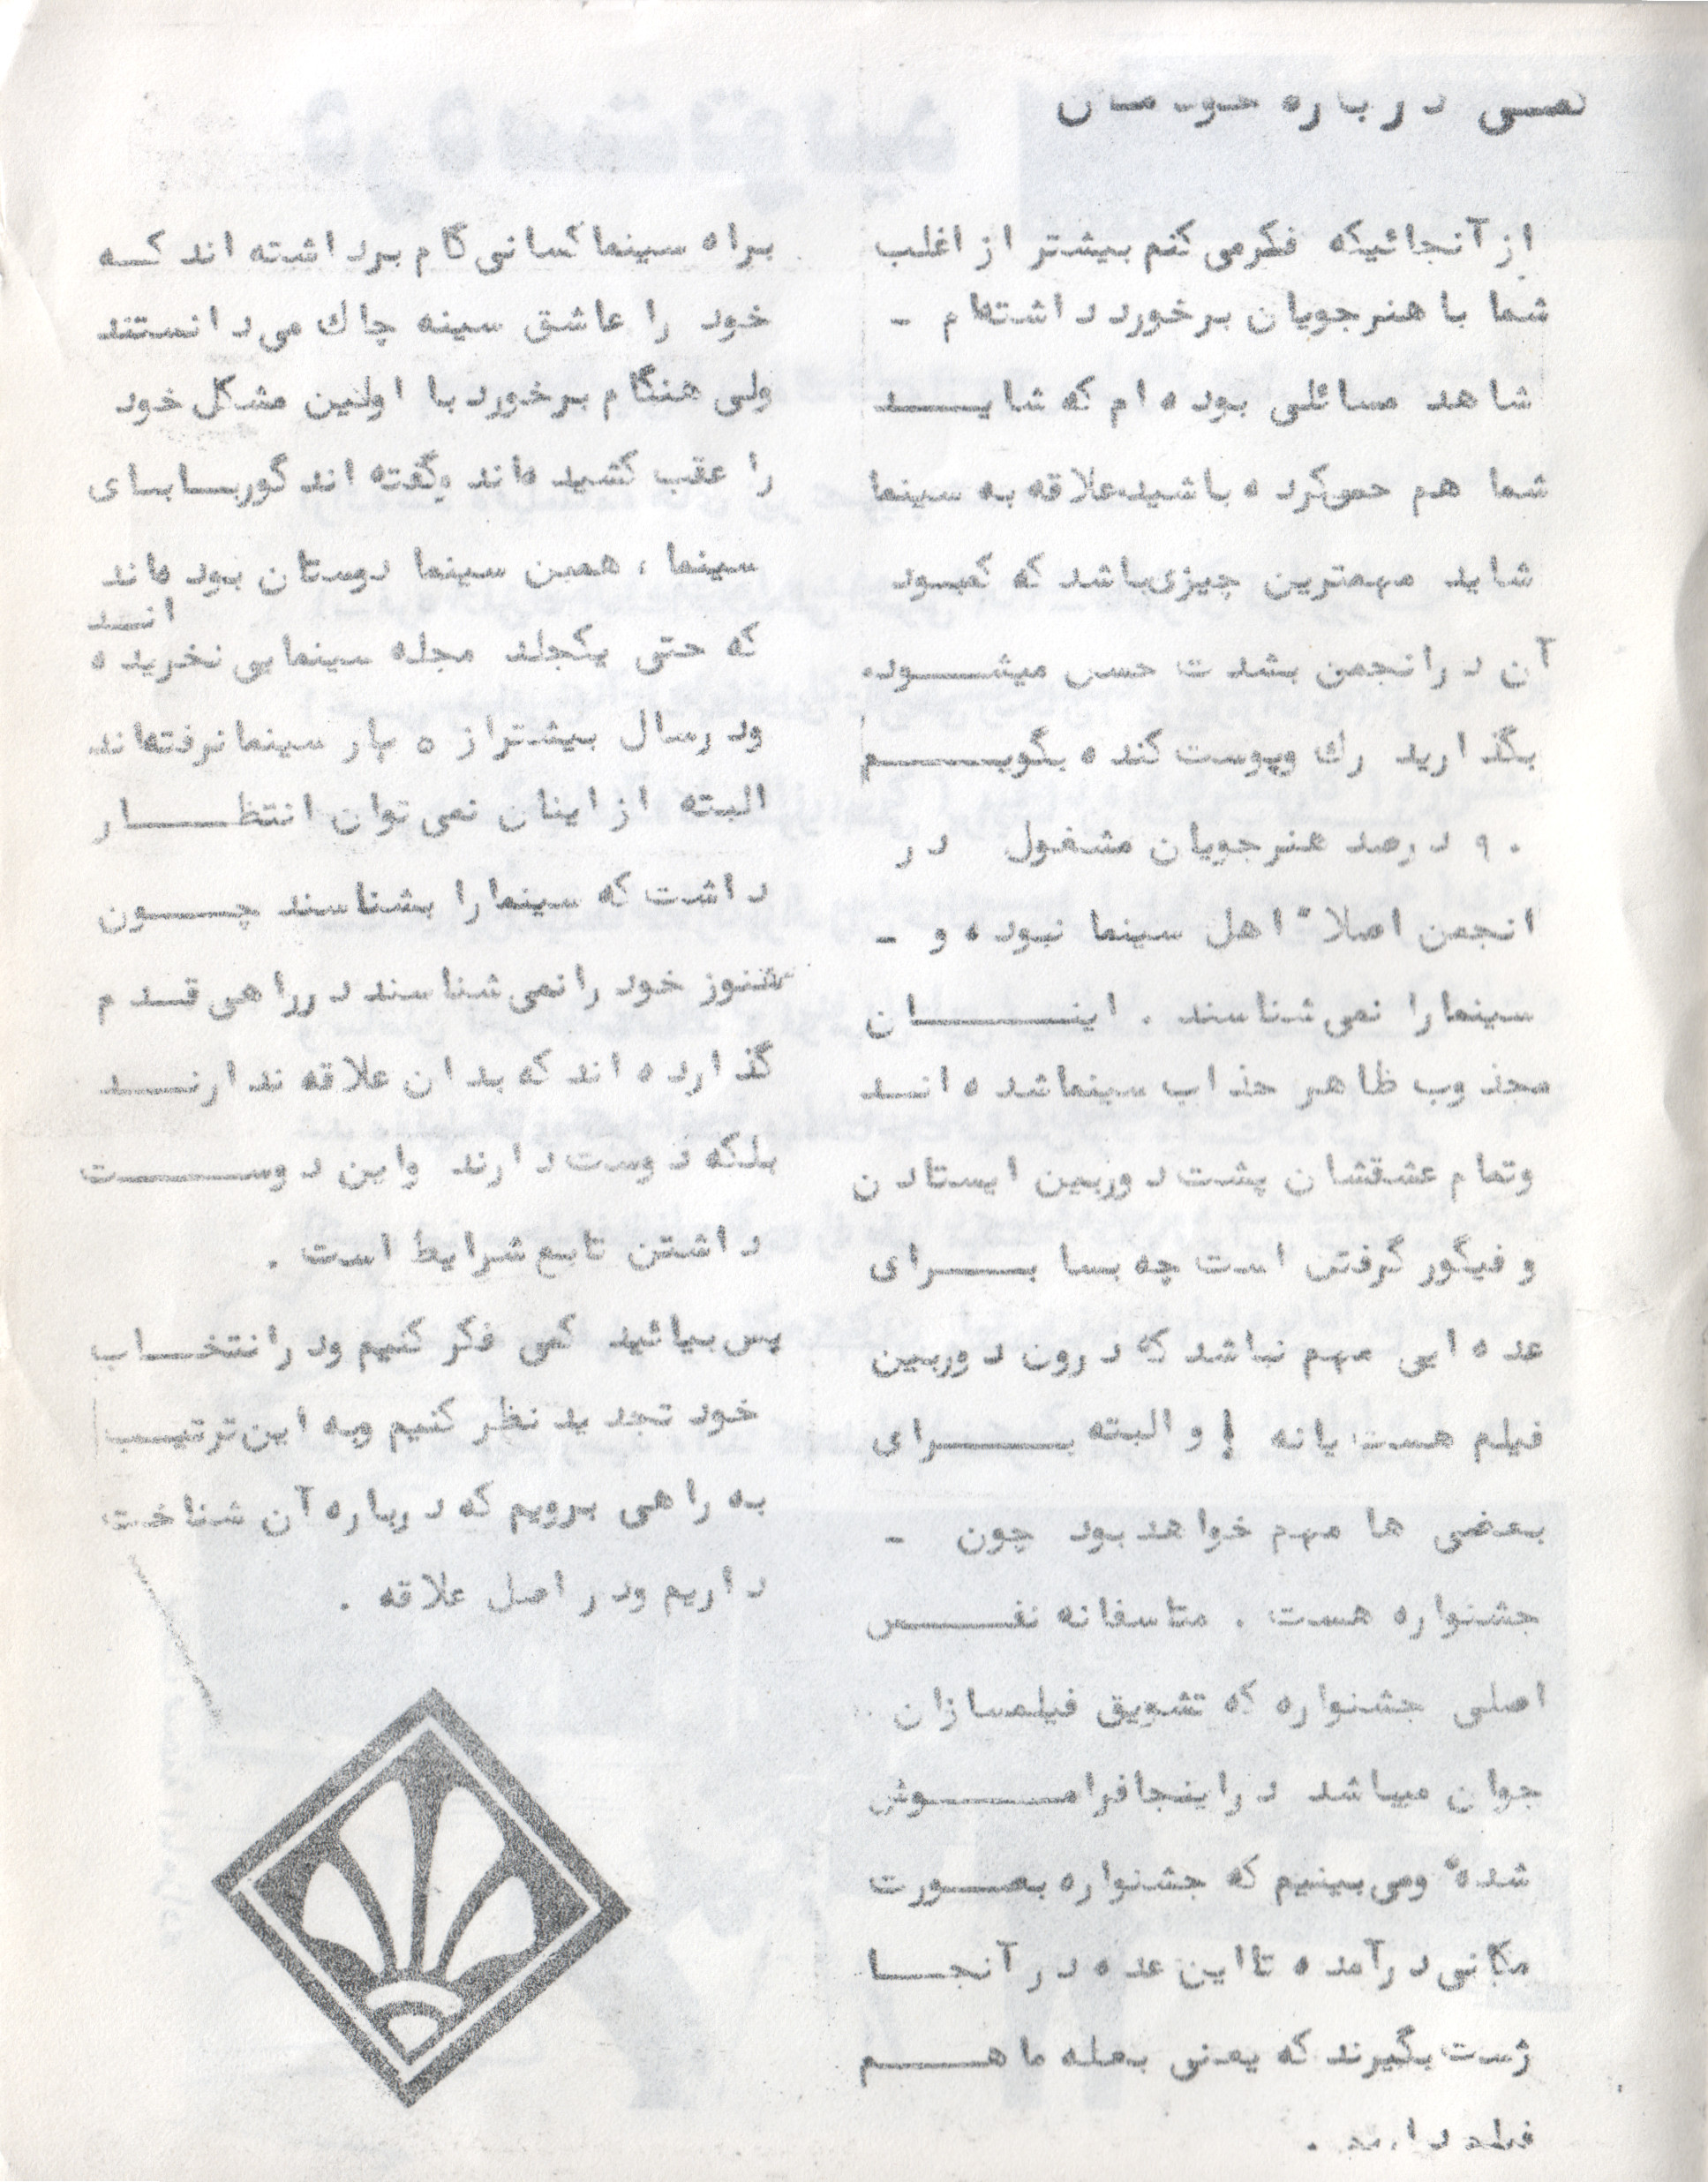 درباره خودمان
از آنجائیکه فکرمی کنم بیشتر از اغلب
شما با هنرجویان برخورد داشته‌ام -
شاهد مسائلی بوده ام که شایـــد
شما هم حس‌کرده باشید،علاقه به سینما
شاید مهمترین چیزی‌باشد که کمبود
آن درانجمن بشدت حس میشـــود.
بگذارید رك وپوست کنده بگویـــم
۹۰ درصد هنرجویان مشغول در
انجمن اصلاً اهل سینما نبوده و -
سینمارا نمی شناسند . اینـــان
مجذوب ظاهر جذاب سینماشده انـد
وتمام عشقشان پشت دوربین ایستادن
و فیگور گرفتن است چه بسا بـــرای
عده ایی مهم نباشد که درون دوربین
فیلم هست یانه ! و البته بـــرای
بعضی ها مهم خواهدبود چون -
جشنواره هست . متاسفانه نفـــس
اصلی جشنواره که تشویق فیلمسازان
جوان میباشد دراینجافرامـــوش
شده ومی‌بینیم که جشنواره بصـورت
مکانی درآمده تااین عده درآنجـا
ژست بگیرند که یعنی بعله ماهـــم
فیلم داریم .
براه سینما کسانی گام برداشته اند کـه
خود را عاشق سینه چاك می‌دانستند
ولی هنگام برخورد با اولین مشکل خود
را عقب کشیده‌اند وگفته اند گوربـابـای
سینما ، همین سینما دوستان بوده‌اند
که حتی یکجلد مجله سینمایی نخریده انــد
ودرسال بیشتراز ۵ بار سینمانرفته‌اند
البته از اینان نمی توان انتظـــار
داشت که سینمارا بشناسند چـــون
هنوز خود رانمی شناسند درراهی قـدم
گذارده اند که بدان علاقه ندارنــد
بلکه دوست دارند واین دوســـت
داشتن تابع شرایط است .
پس بیائید کمی فکر کنیم ودرانتخـاب
خود تجدید نظر کنیم وبه این ترتیـب
به راهی برویم که درباره آن شناخت
داریم ودر اصل علاقه .